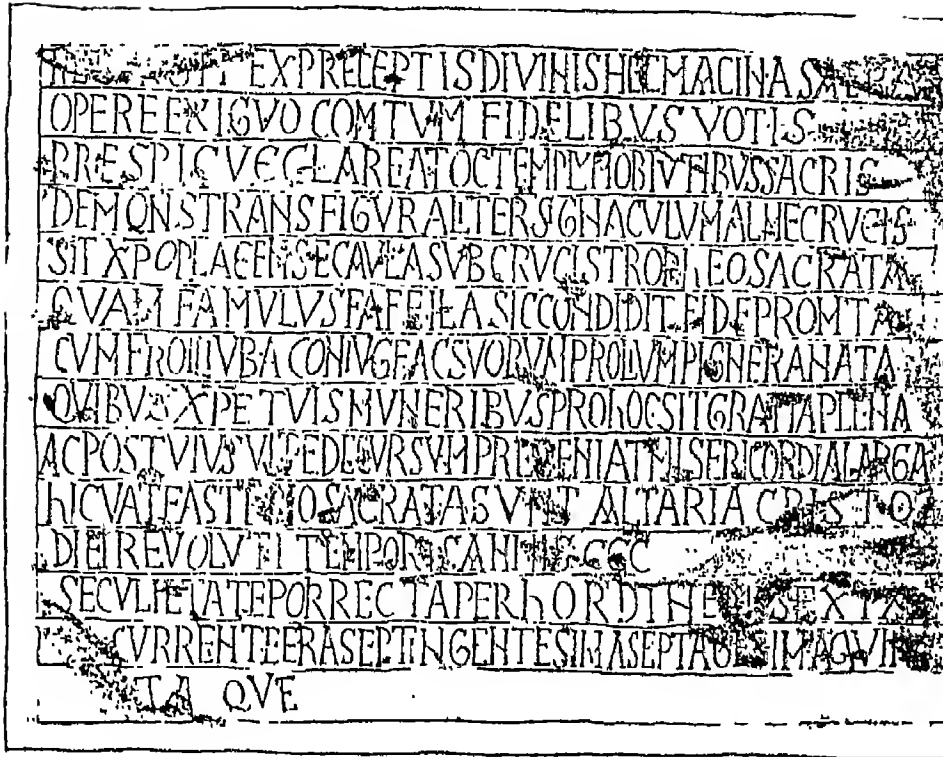 EXPRECEPTISDIVINISHECMACINASACRA
OPEREEXIGVOCOMTVMFIDELIBVSVOTIS
PRESPICVECLAREATOCTEMPLVMOBTVTIBVSSACRIS
DEMONSTRANSFIGVRALITERSIGNACVLVMALMECRVCIS
SITXPOPLACENSECAVLASVBCRVCISTROPhEOSACRATA
QVAMFAMVLVSFAFEILASICCONDIDITFIDEPROMTA
CVMFROILIVBACONIVGEACSVORVMPROLIVMPIGNERANATA
QVIBVSXPETVISMVNERIBVSPROhOCSITGRATIAPLENA
ACPOSTVIVSVITEDECVRSVMPREVENIATMISERICORDIALARGA
hICVATEASTERIOSACRATASVNTALTARIACRISTO
DIEIREVOLVTITEMPORISANNIS CCC
SECVLIETATEPORRECTAPERhORDINEMSEXTA
CVRRENTEERASEPTINGENTESIMASEPTAGESIMAQVIN
TA QVE